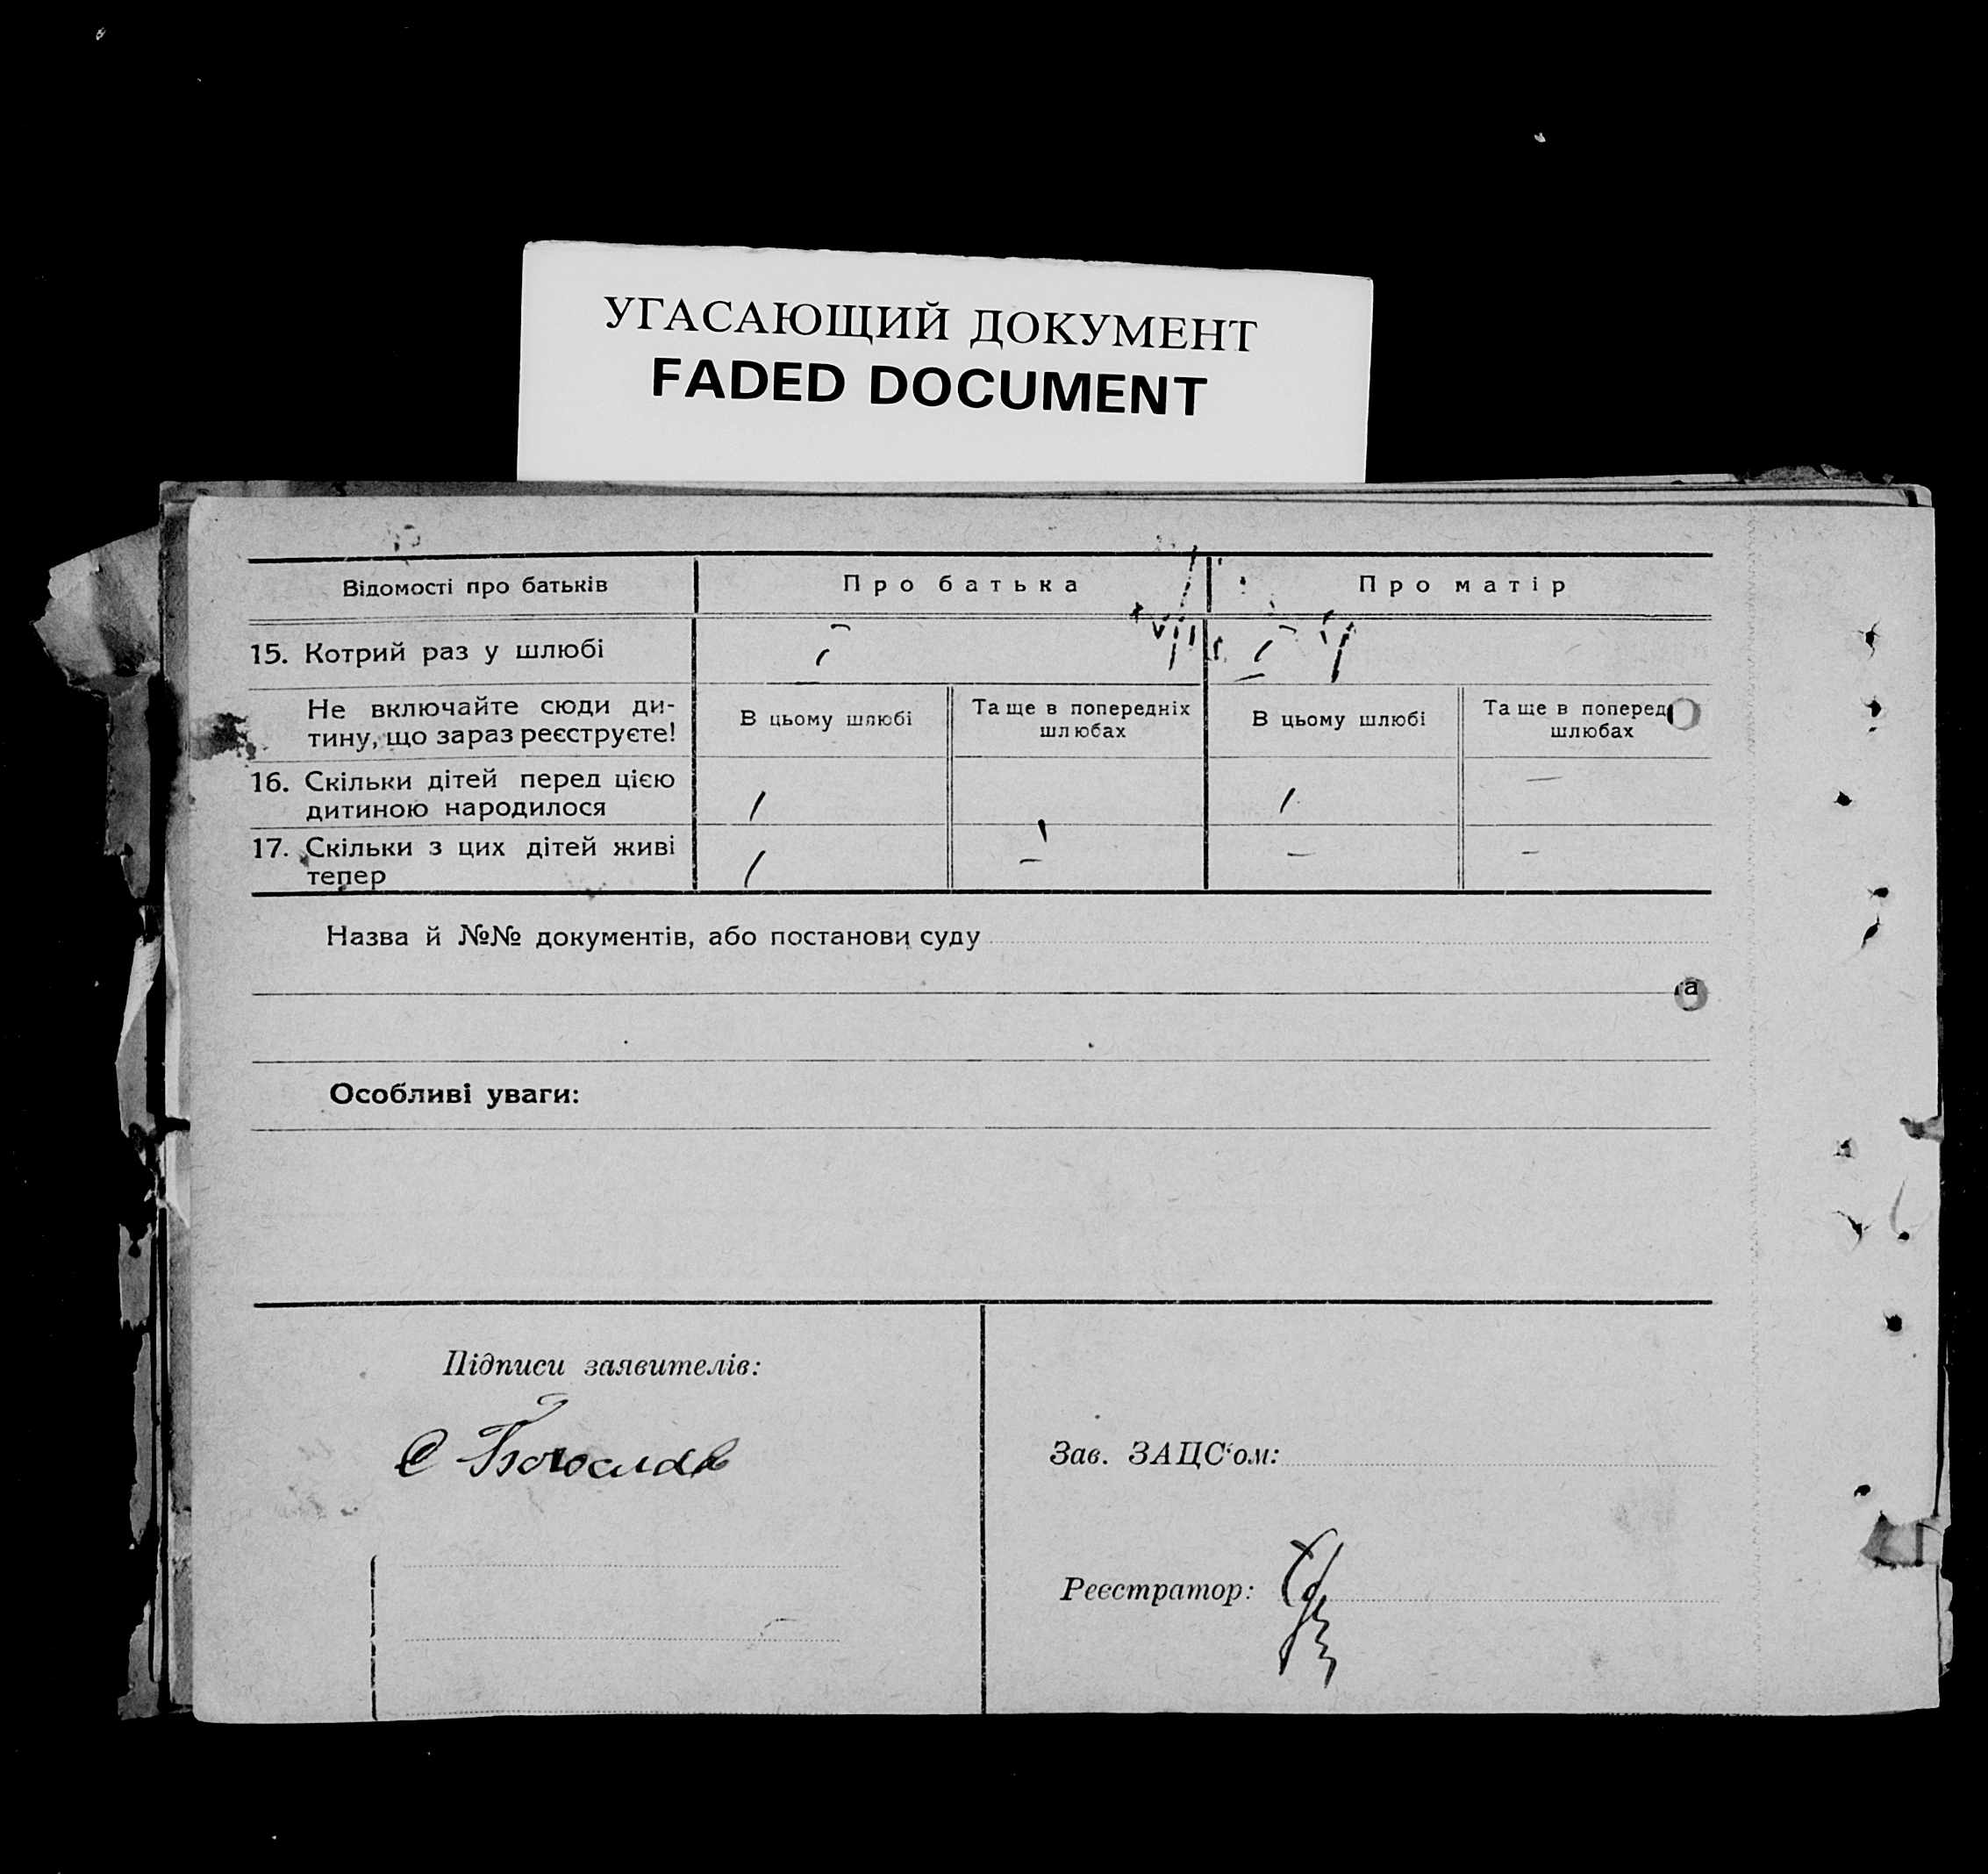 УГАСАЮЩИЙ ДОКУМЕНТ
FADED DOCUMENT
Відомості про батьків Про батька Про матір
15. Котрий раз у шлюбі
Не включайте сюди ди-
тину, що зараз реєструєте!
В цьому шлюбі Та ще в попередніх
шлюбах
В цьому шлюбі Та ще в поперед
шлюбах
16. Скільки дітей перед цією
дитиною народилося
1 1 —
17. Скільки з цих дітей живі
тепер
1 – – –
Назва й №№ документів, або постанови суду
Особливі уваги:
Підписи заявителів:
Зав. ЗАЦС'ом:
Реєстратор: